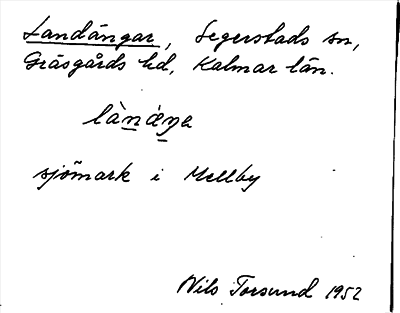 Landängar, Segerstads sn,
Gräsgårds hd, Kalmar län.
làn̲ǽŋ̲a
sjömark i Mellby
Nils Torsund 1952